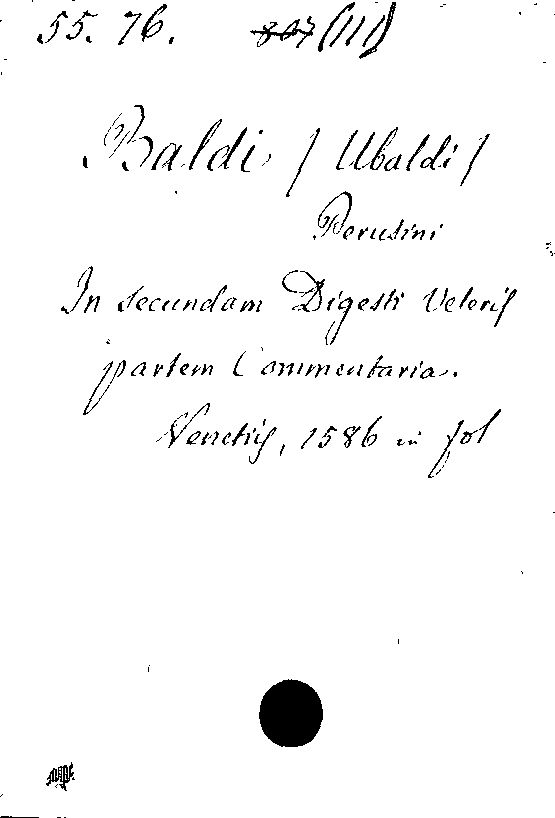 55. 76. 807 (III)
Baldi / Ubaldi /
Perusini
In secundam Digesti Veteris
partem Commentaria.
Venetijs, 1586 in fol